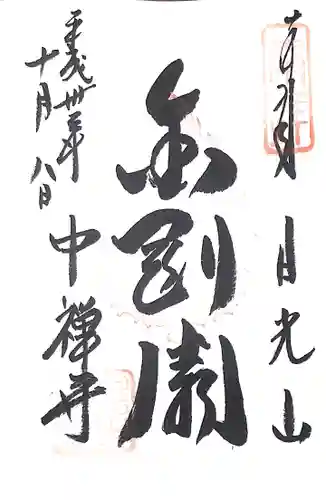 奉拝
日光山
金剛
平成卅年
十月八日
中禅寺